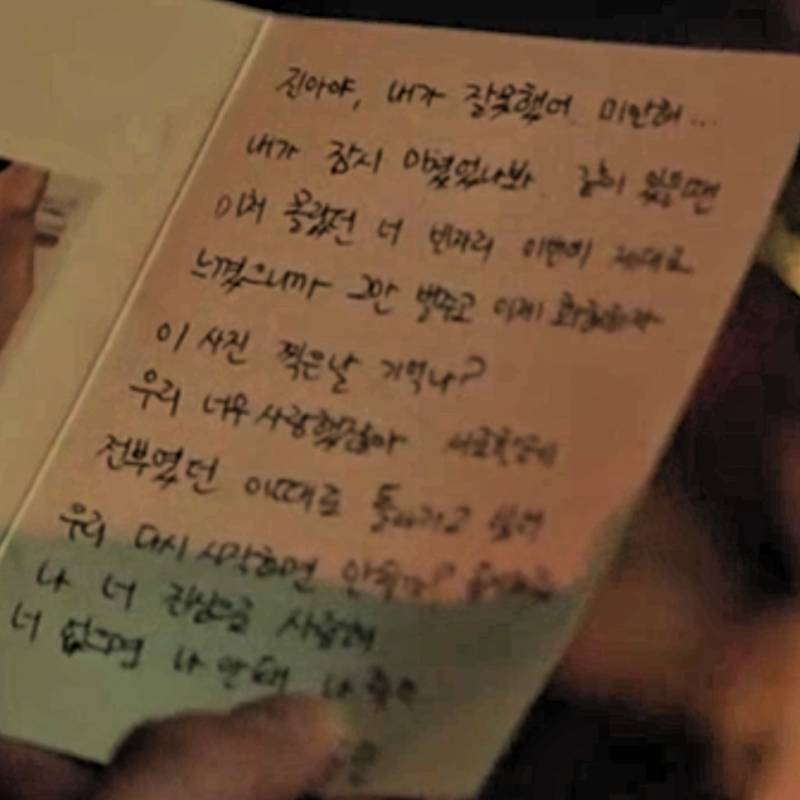 진아야, 내가 잘못했어. 미안해...
내가 잠시 미쳤었나봐. 같이 있을땐
미처 몰랐던 너 빈자리 이번에 제대로
느꼈으니까 그만 벌주고 이제 화해하자
이 사진 찍은날 기억나?
우리 너무 사랑했잖아 서로한테
전부였던 이때로 돌아가고 싶어
우리 다시 시작하면 안될까?
나 너 진심으로 사랑해
너 없으면 나 안돼 나